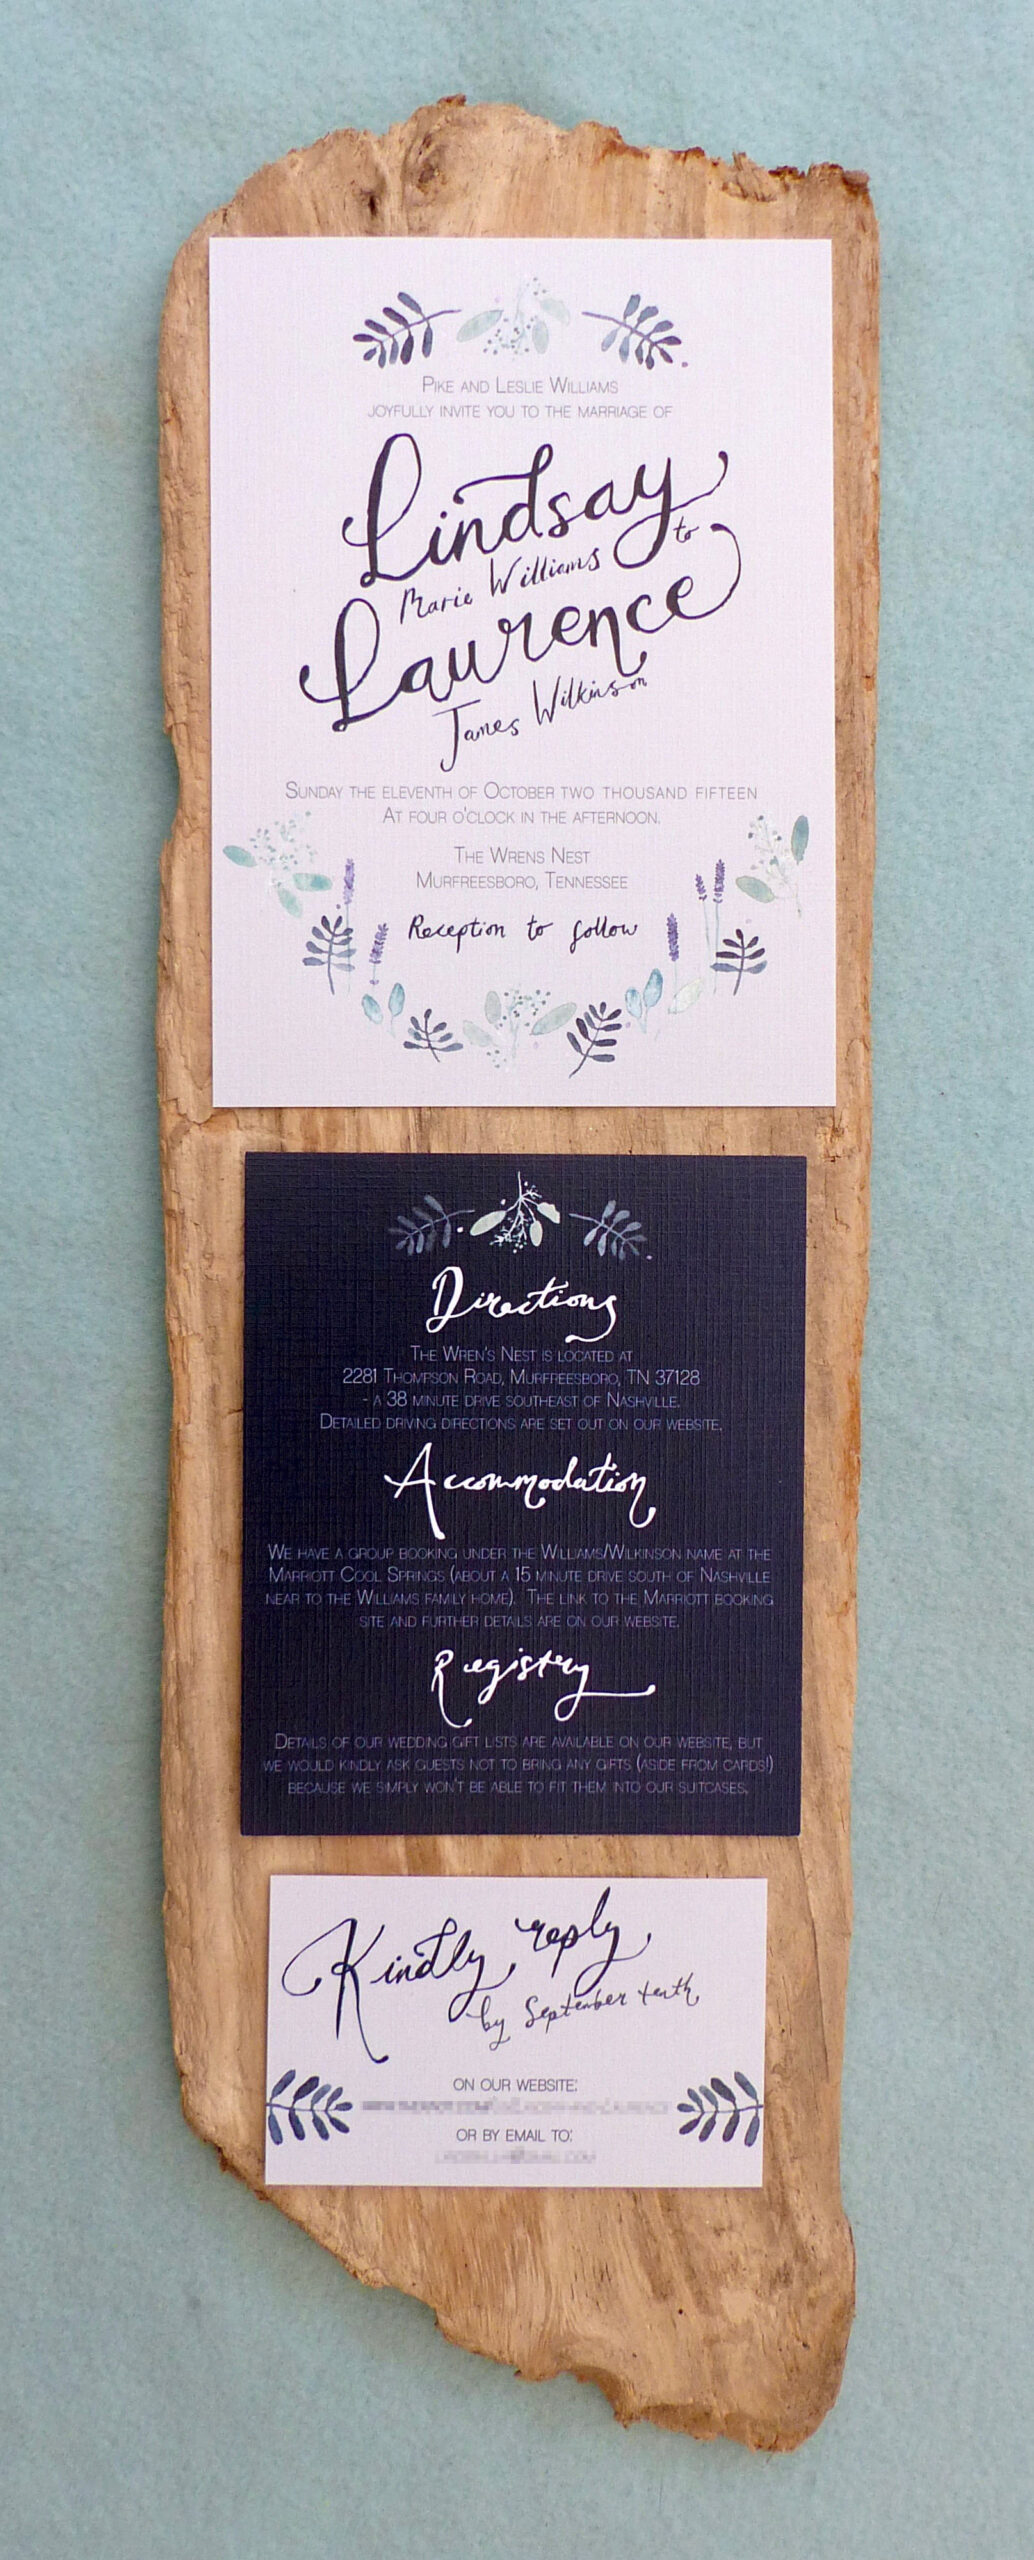 Pike and Leslie Williams
joyfully invite you to the marriage of
Lindsay
to
Marie Williams
Laurence
James Wilkinson
Sunday the eleventh of October two thousand fifteen
At four o'clock in the afternoon.
The Wrens Nest
Murfreesboro, Tennessee
Reception to follow
Directions
The Wren's Nest is located at
2281 Thompson Road, Murfreesboro, TN 37128
- a 38 minute drive southeast of Nashville.
Detailed driving directions are set out on our website.
Accommodation
We have a group booking under the Williams/Wilkinson name at the
Marriott Cool Springs (about a 15 minute drive south of Nashville
near to the Williams family home). The link to the Marriott booking
site and further details are on our website.
Registry
Details of our wedding gift lists are available on our website, but
we would kindly ask guests not to bring any gifts (aside from cards!)
because we simply won't be able to fit them into our suitcases.
Kindly reply
by September tenth
on our website:
or by email to: